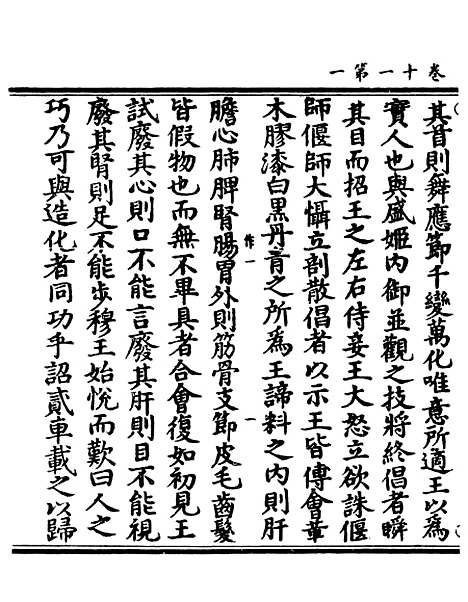 卷十一第一
其首則舞應節千變萬化唯意所適王以為
實人也與盛姬內御並觀之技將終倡者瞬
其目而招王之左右侍妾王大怒立欲誅偃
師偃師大懾立剖散倡者以示王皆傅會革
木膠漆白黑丹青之所為王諦料之內則肝
膽心肺脾腎腸胃外則筋骨支節皮毛齒髮
皆假物也而無不畢具者合會復如初見王
試廢其心則口不能言廢其肝則目不能視
廢其腎則足不能步穆王始悅而歎曰人之
巧乃可與造化者同功乎詔貳車載之以歸